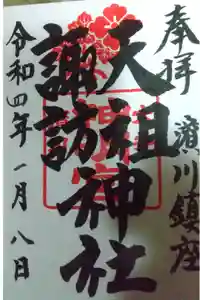 奉拝
濱川鎮座
天祖神社
諏訪神社
令和四年一月八日